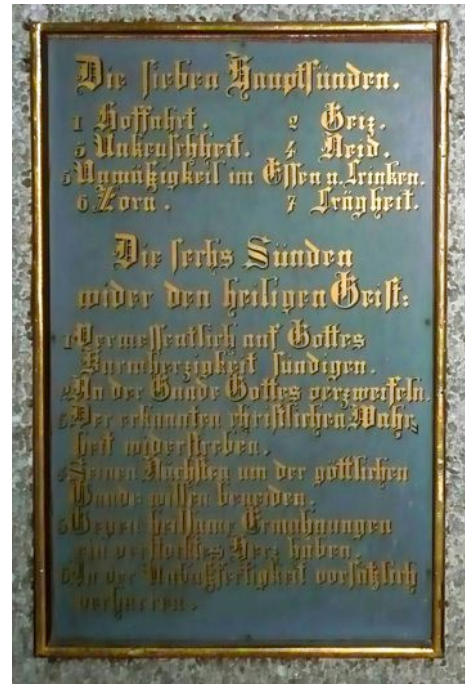 Die sieben Hauptsünden.
1 Hoffahrt. 2 Geiz.
3 Unkeuschheit. 4 Neid.
5 Unmäßigkeit im Essen u. Trinken.
6 Zorn. 7 Trägheit.
Die sechs Sünden
wider den heiligen Geist:
1 Vermessentlich auf Gottes
Barmherzigkeit sündigen.
2 An der Gnade Gottes verzweifeln.
3 Der erkannten christlichen Wahr⸗
heit widerstreben.
4 Seinen Nächsten um der göttlichen
Gnade willen beneiden.
5 Gegen heilsame Ermahnungen
ein verstocktes Herz haben.
6 In der Unbußfertigkeit vorsätzlich
verharren.